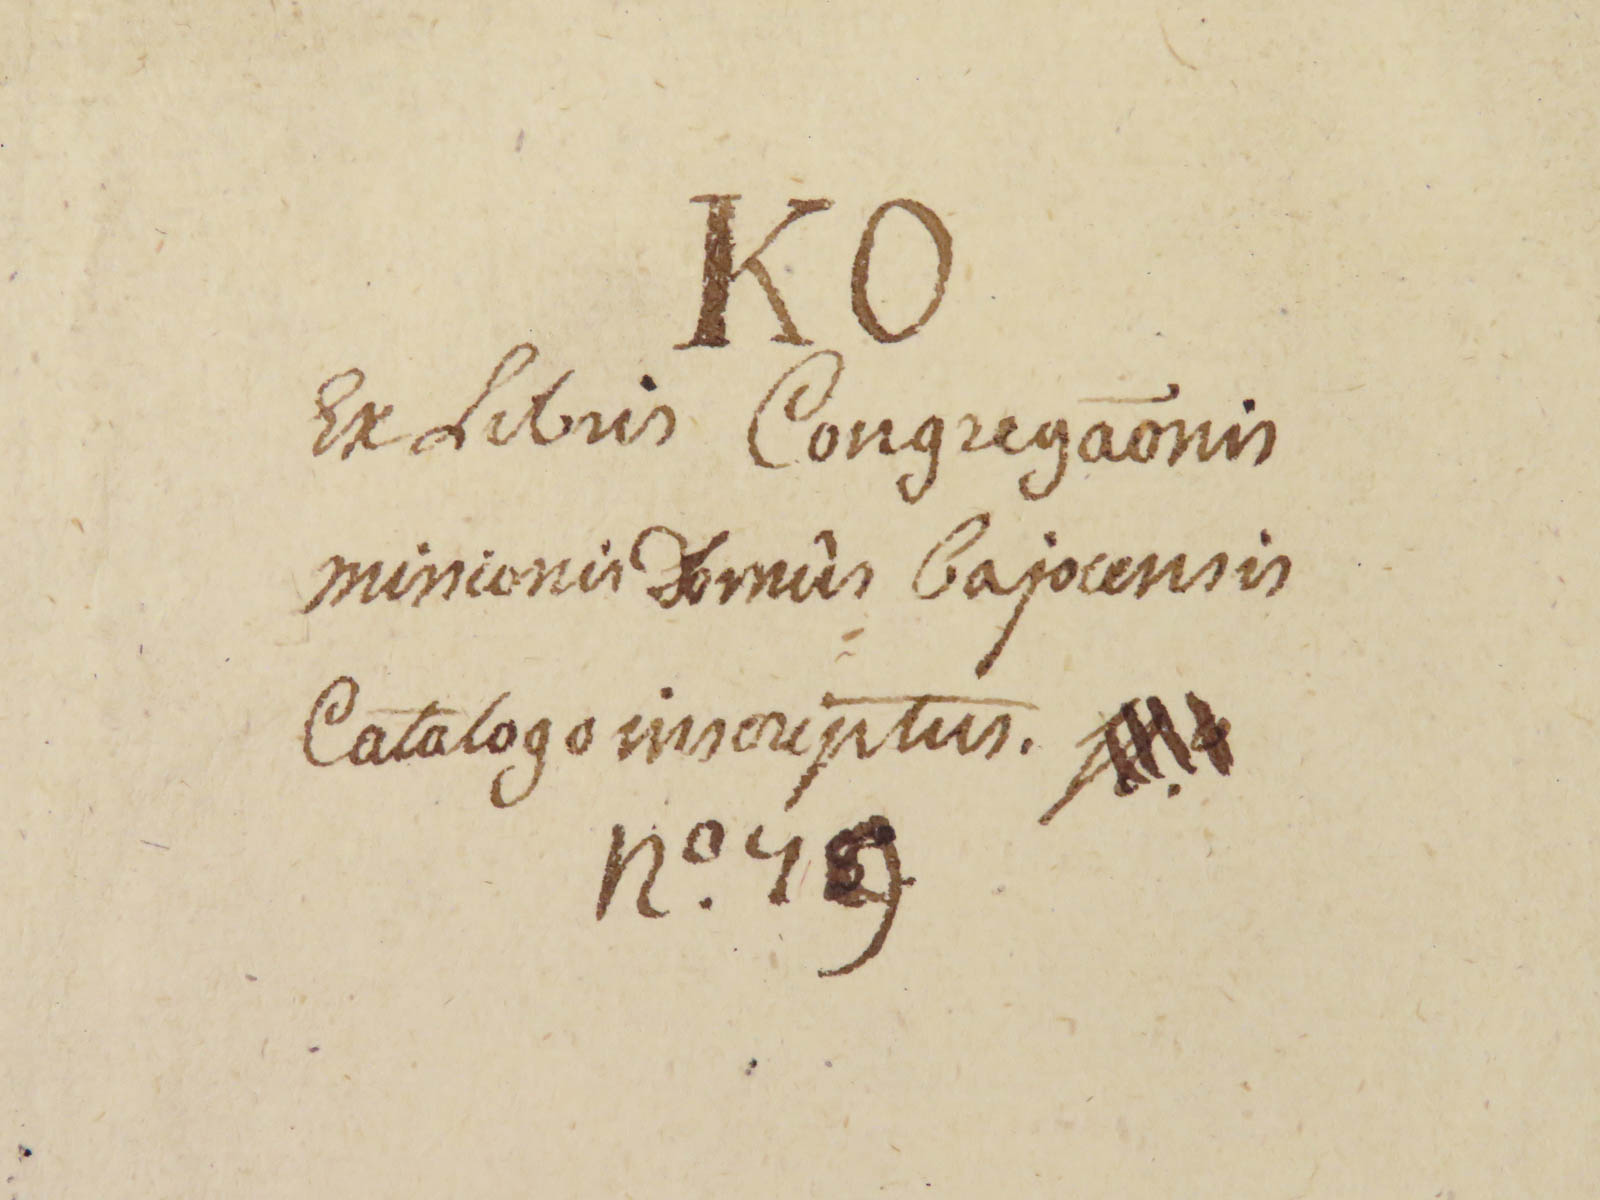 KO
Ex Libris Congregaōnis
missionis Domûs bajocensis
Catalogo inscriptus.
No.